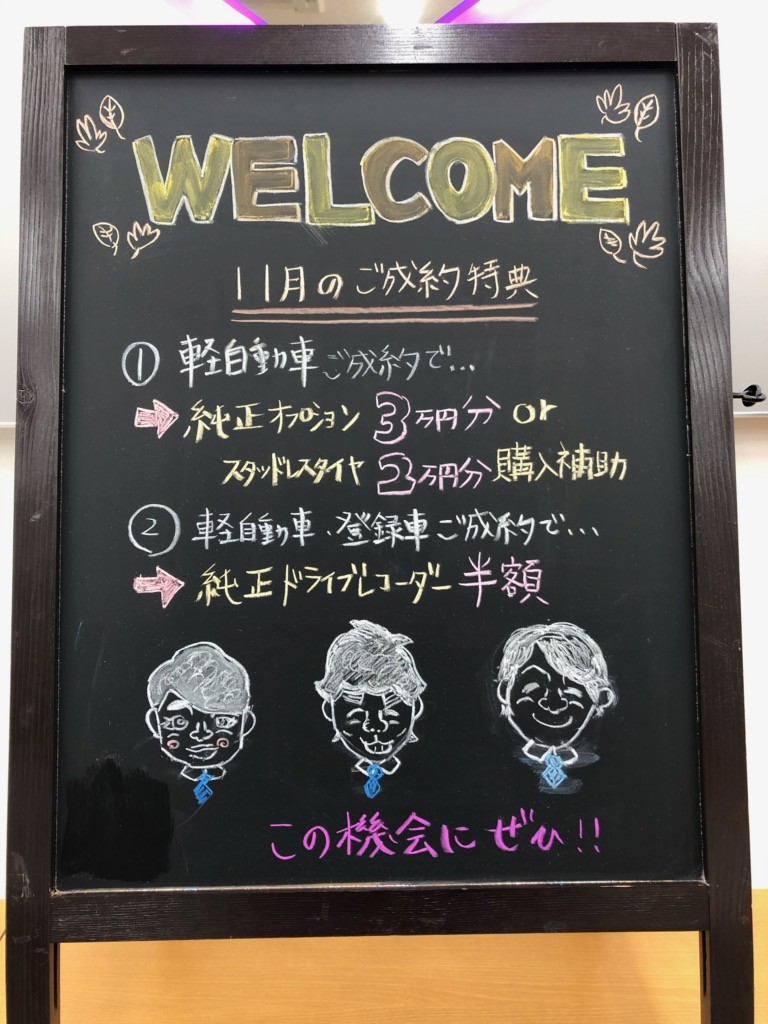 WELCOME
11月のご成約特典
① 軽自動車ご成約で...
純正オプション 3万円分 or
スタッドレスタイヤ 2万円分購入補助
② 軽自動車、登録車ご成約で...
純正ドライブレコーダー 半額
この機会にぜひ!!